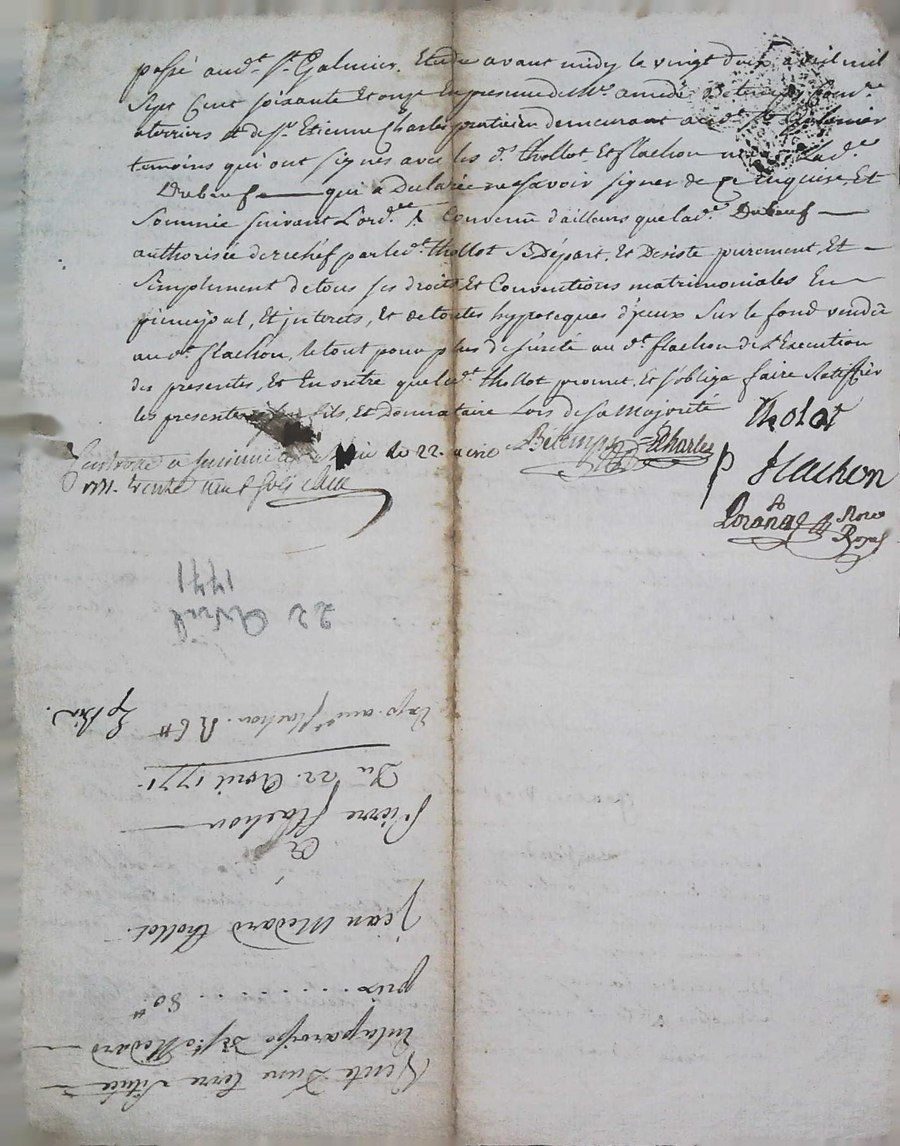 passé aud.t S.t Galmier. Etude avant midy le vingt deux avril mil
Sept Cent soixante Et onze En presence de M.e amedé
et de S.r Etienne Charles praticien demeurant aud.t S.t Galmier
temoins qui ont signés avec les d.s thollot, Et flachon lad.e
Dubeuf qui a Declarée ne savoir signer de ce Enquise, Et
Sommée suivant L'ord.ce Convenu d'ailleurs que lad.e Dubeuf
authorisée derechéf par led.t thollot Se Départ, Et Desiste purement, Et
Simplement de tous ses droits, Et Conventions matrimoniales En
principal, Et interets, Et de toutes hypoteques d'jceux Sur le fond vendu
aud.t flachon, le tout pour plus de sureté aud.t flachon de L'Execution
des presentes, Et En outre que led.t thollot promet, Et s'obliga faire Ratiffier
les presentes fils, Et Donnataire Lors de sa Majorité tholot
le 22. avril Betemps ECharles
1771. trente neuf sols P flachon
Royal
22 Avril
1771
Exp. aud.t flachon. R 6tt
Du 22. Avril 1771.
Pierre flachon
Et
Jean Medard thollot.
prix ....... 80tt
En la paroisse de S.t Medard
Vente D'une terre Située